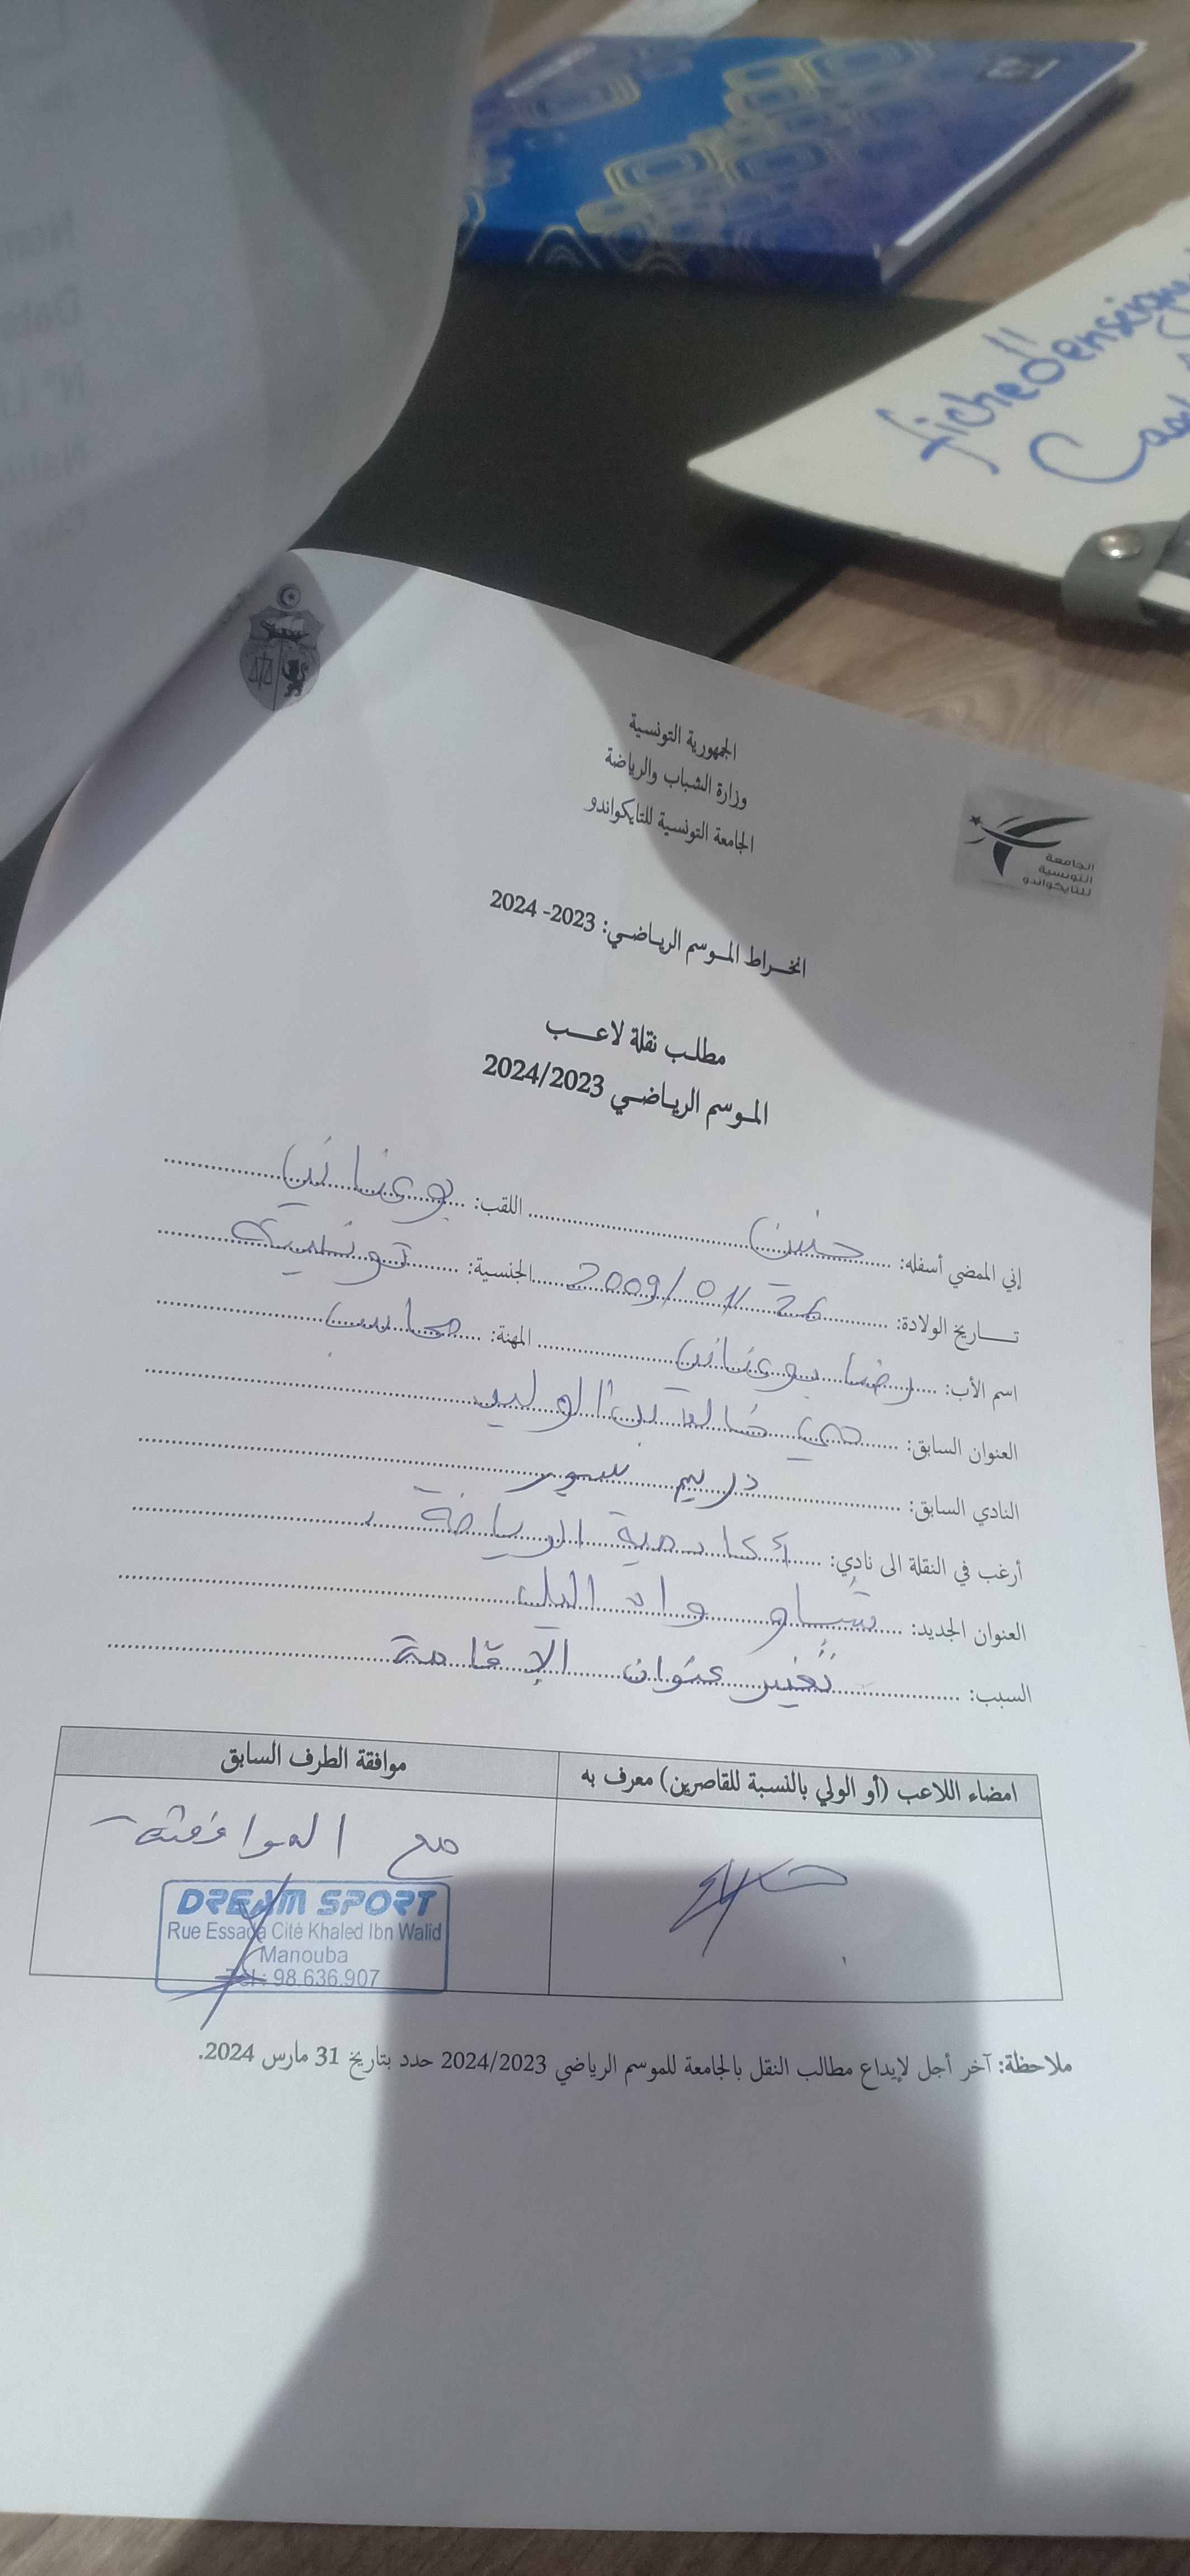 fiche d'enseign
الجمهورية التونسية
وزارة الشباب والرياضة
الجامعة التونسية للتايكواندو
الجامعة
التونسية
للتايكواندو
انخراط الموسم الرياضي: 2023- 2024
مطلب نقلة لاعب
الموسم الرياضي 2024/2023
إني الممضي أسفله: حنين اللقب: بوعناني
تاريخ الولادة: 26 /01/ 2009 الجنسية: تونسية
اسم الأب: رضا بوعناني المهنة: محاسب
العنوان السابق: حي خالد بن الوليد
النادي السابق: دريم سبور
أرغب في النقلة الى نادي: أكادمية الرياضة
العنوان الجديد: واد الليل
السبب: تغيير عنوان الإقامة
امضاء اللاعب (أو الولي بالنسبة للقاصرين) معرف به
موافقة الطرف السابق
مع الموافقة
DREAM SPORT
Rue Essada Cité Khaled Ibn Walid
Manouba
Tél : 98.636.907
ملاحظة: آخر أجل لإيداع مطالب النقل بالجامعة للموسم الرياضي 2024/2023 حدد بتاريخ 31 مارس 2024.